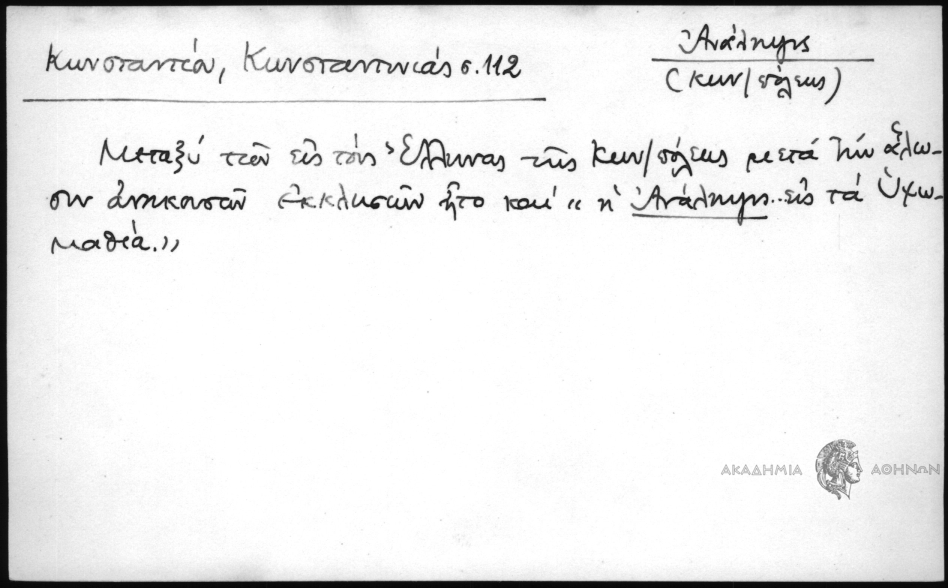 Κωνσταντίου, Κωνσταντινιάς σ. 112
Ἀνάληψις
(Κων/πόλεως)
Μεταξύ τῶν εἰς τούς Ἕλληνας τῆς Κων/πόλεως μετά τήν ἅλω-
σιν ἀνηκουσῶν ἐκκλησιῶν ἦτο καί « ἡ Ἀνάληψις.. εἰς τά Ὑψω-
μαθειά.»
ΑΚΑΔΗΜΙΑ ΑΘΗΝΩΝ